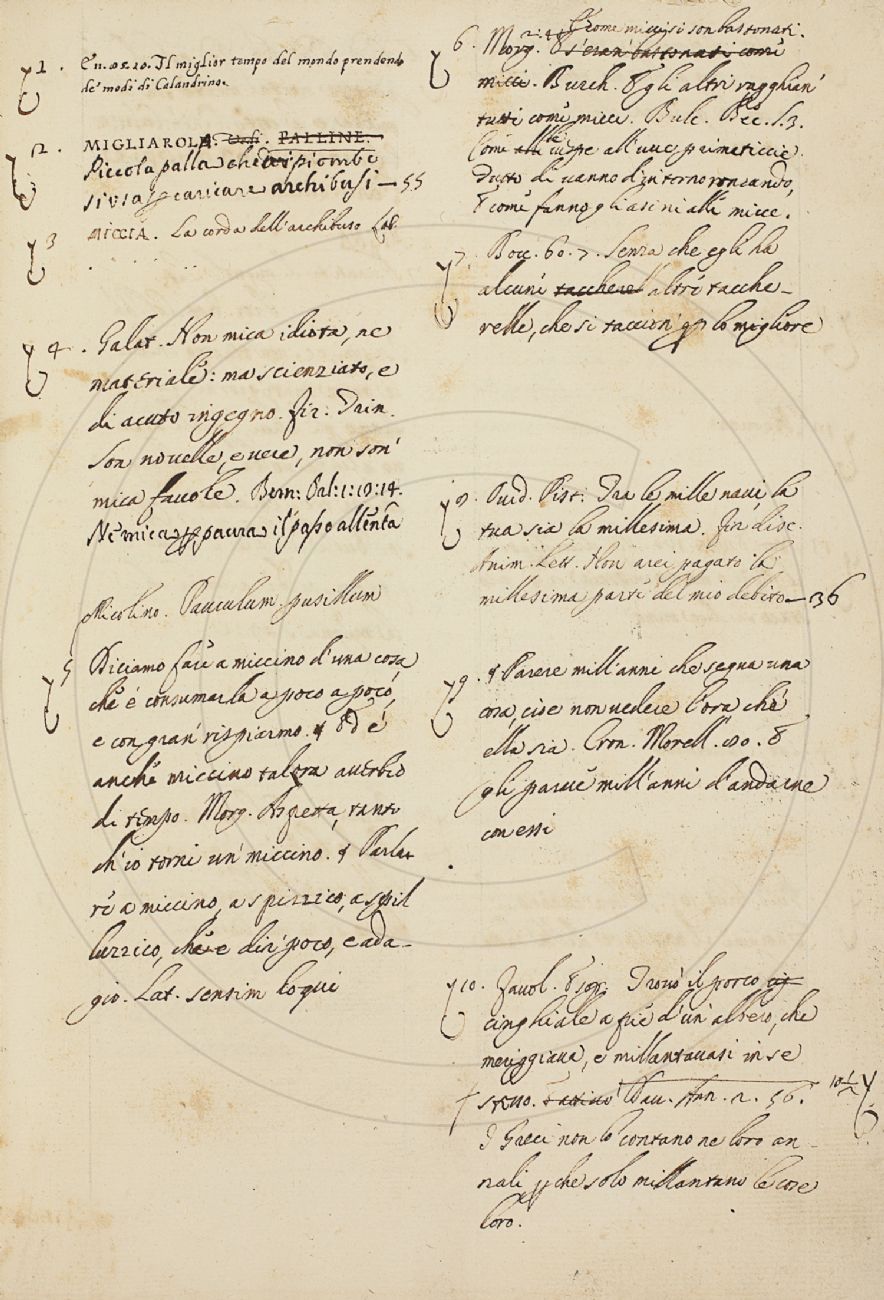 1. En. 25. 20. Il miglior tempo del mondo prendendo
de' modi di Calandrino.
2. MIGLIAROLA. PALLINE.
Piccola palla che di piombo
si usa per caricare archibusi — 55
3 MICCIA. La corda dell'archibuso Lat.
4. Galat. Non mica idiota, ne
materiale: ma scienziato, e
di acuto ingegno. Fir: Trin.
Son novelle, e vere, non son'
mica favole. Bern: Pal: 1: 19: 14.
Ne mica per paura il passo allenta
Miccolino. Pauculum. pusillum
5 Diciamo fare a miccino d'una cosa
che è consumarla a poco a poco,
e con gran' rispiarmo. Ed è
anche miccino talora averbio
di tempo. Morg. Aspetta, tanto
ch'io torni un' miccino. Parla-
re a miccino, a spizzico, a spil
luzzico, che è dir' poco, e ada-
gio. Lat. sentim loqui
6. E come micci si son bastonati.
Morg. E s'eran' bastonati come
micci. Burch. E gli altri ragghian'
tutti come micci. Buc. l. 3.
Come alle vespe all'uve primaticcie
Tutto di vanno d'intorno ronzando,
E come fanno gli asini alle micce.
7. Bocc. 60. 7. Senza che egli ha
alcune tacchere l'altre tacche-
relle, che si taccion' per lo migliore
8. Ovid. Pist: Tra le mille navi, la
tua sia la millesima. Fir. disc.
Anim. Lett. Non arei pagato la
millesima parte del mio debito — 36
9. Parere mill'anni che segua una
cosa, cioe non vedere l'ora che
ella sia. Cron. Morell. 20. E
gli parve mill'anni d'andarne
con essi
10. Favol. Esop. Trovò il porco cig
cinghiale a pie d'un albero, che
meriggiava, e millantavasi in se
stesso. Tacito Dav. Ann. 2. 56. 10½
I Greci non lo contano ne loro an-
nali per che solo millantano le cose
loro.